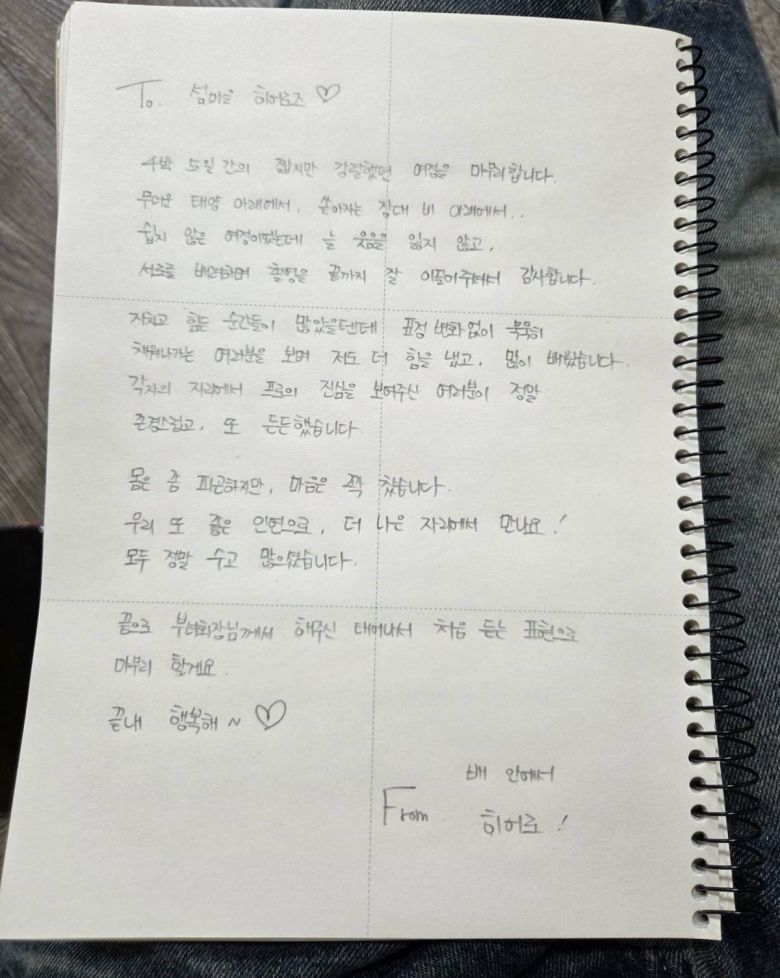 To. 섬마을 히어로즈♡
4박 5일간의 짧지만 강렬했던 여정을 마무리합니다.
무더운 태양 아래에서, 쏟아지는 장대 비 아래에서..
쉽지 않은 여정이었는데 늘 웃음을 잃지 않고,
서로를 배려하며 촬영을 끝까지 잘 이끌어주셔서 감사합니다.
지치고 힘든 순간들이 많았을텐데 표정 변화 없이 묵묵히
채워나가는 여러분을 보며 저도 더 힘을 냈고, 많이 배웠습니다.
각자의 자리에서 프로의 진심을 보여주신 여러분이 정말
존경스럽고, 또 든든했습니다.
몸은 좀 피곤하지만, 마음은 꽉 찼습니다.
우리 또 좋은 인연으로, 더 나은 자리에서 만나요!
모두 정말 수고 많으셨습니다.
끝으로 부녀회장님께서 해주신 태어나서 처음 듣는 표현으로
마무리 할게요.
끝내 행복해~♡
배 안에서
From 히어로!